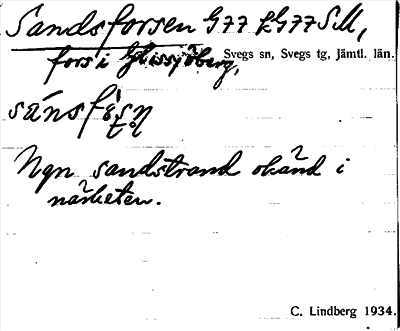 Sandsforsen G77 LG77SM,
fors i Glissjöberg, Svegs sn, Svegs tg, Jämtl. län.
Ngn sandstrand okänd i
närheten.
C. Lindberg 1934.